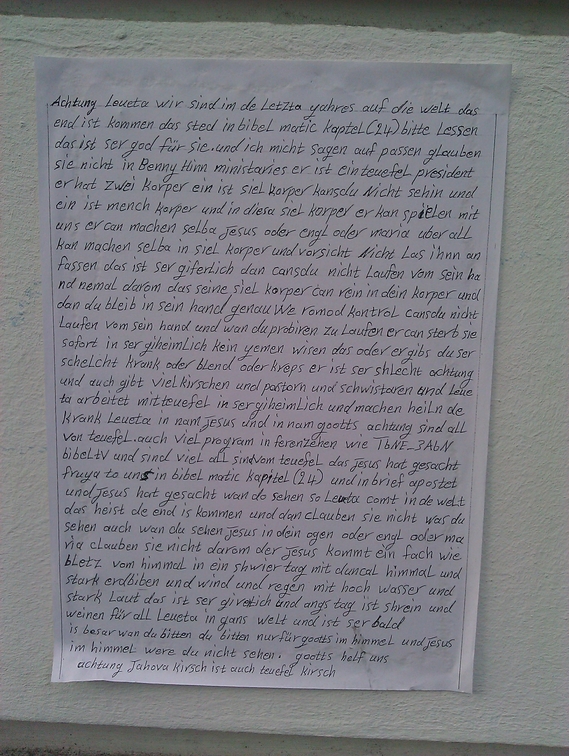 Achtung Leueta wir sind im de Letzta yahres auf die welt das
end ist kommen das sted in bibel matic kaptel (24) bitte Lessen
das ist ser god für sie. und ich micht sagen auf passen glauben
sie nicht in Benny Hinn ministaries er ist ein teuefel president
er hat zwei korper ein ist siel korper kansdu Nicht sehin und
ein ist mench korper und in diesa siel korper er kan spielen mit
uns er can machen selba jesus oder engl oder maria uber all
kan machen selba in siel korper und vorsicht Nicht Las ihnn an
fassen das ist ser giferlich dan cansdu nicht Laufen vom sein ha
nd nemal darom das seine siel korper can rein in dein korper und
dan du bleib in sein hand genau We romod kontrol cansdu nicht
Laufen vom sein hand und wan du probiren zu Laufen er can sterb sie
sofort in ser giheimlich kein yemen wisen das oder er gibs du ser
schelcht krank oder blend oder kreps er ist ser shlecht achtung
und auch gibt viel kirschen und pastorn und schwistaren und Leue
ta arbeitet mit teuefel in ser giheimLich und machen heiln de
Krank Leueta in nam jesus und in nam gootts achtung sind all
von teuefel. auch viel program in ferenzehen wie TbNE_3AbN
bibeLtV und sind viel all sind vom teuefel das jesus hat gesacht
fruya to uns in bibel matic kapitel (24) und in brief apostet
und jesus hat gesacht wan do sehen so Leueta comt in de welt
das heist de end is kommen und dan cLauben sie nicht was du
sehen auch wan du sehen jesus in dein ogen oder engl oder ma
ria clauben sie nicht darom der jesus kommt ein fach wie
bletz vom himmal in ein shwier tag mit duncal himmal und
stark erdbiben und wind und regen mit hoch wasser und
stark Laut das ist ser giretich und angs tag ist shrein und
weinen für all Leueta in gans welt und ist ser bald
is besar wan du bitten du bitten nur für gootts im himmel und jesus
im himmel were du nicht sehen. gootts helf uns
achtung Jahova Kirsch ist auch teuefel kirsch